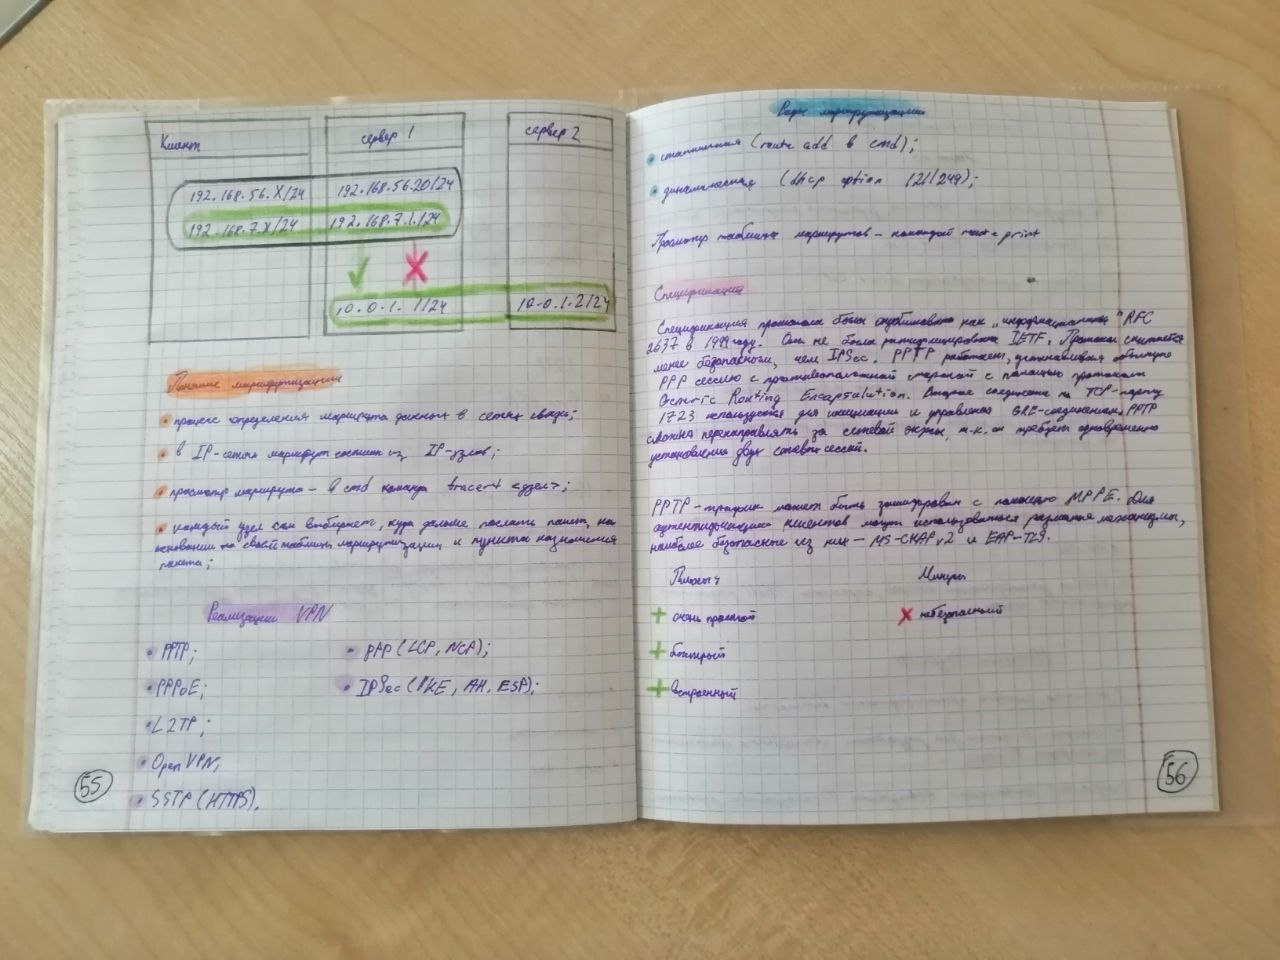 Клиент
сервер 1
сервер 2
192.168.56.X/24
192.168.56.20/24
192.168.7.X/24
192.168.7.1./24
10.0.1.1/24
10.0.1.2/24
Понятие маршрутизации
процесс определения маршрута данных в сетях связи;
в IP-сетях маршрут состоит из IP-узлов;
просмотр маршрута – в cmd команда tracert <узел>;
каждый узел сам выбирает, куда дальше послать пакет, на
основании своей таблицы маршрутизации и пункта назначения
пакета;
Реализации VPN
PPTP;
PPPoE;
L2TP;
OpenVPN;
SSTP (HTTPS).
PPP (LCP, NCP);
IPSec (IKE, AH, ESP);
55
Виды маршрутизации
статичная (route add в cmd);
динамическая (dhcp option 121/249);
Просмотр таблицы маршрутов – командой route print
Спецификация
Спецификация протокола была опубликована как "информационная" RFC
2637 в 1999 году. Она не была ратифицирована IETF. Протокол считается
менее безопасным, чем IPSec. PPTP работает, устанавливая обычную
PPP сессию с противоположной стороной с помощью протокола
Generic Routing Encapsulation. Второе соединение на TCP-порту
1723 используется для инициации и управления GRE-соединением. PPTP
сложно перенаправлять за сетевой экран, т.к. он требует одновременного
установления двух сетевых сессий.
PPTP-трафик может быть зашифрован с помощью MPPE. Для
аутентификации клиентов могут использоваться различные механизмы,
наиболее безопасные из них – MS-CHAPv2 и EAP-TLS.
Плюсы
Минусы
очень простой
небезопасный
быстрый
встроенный
56